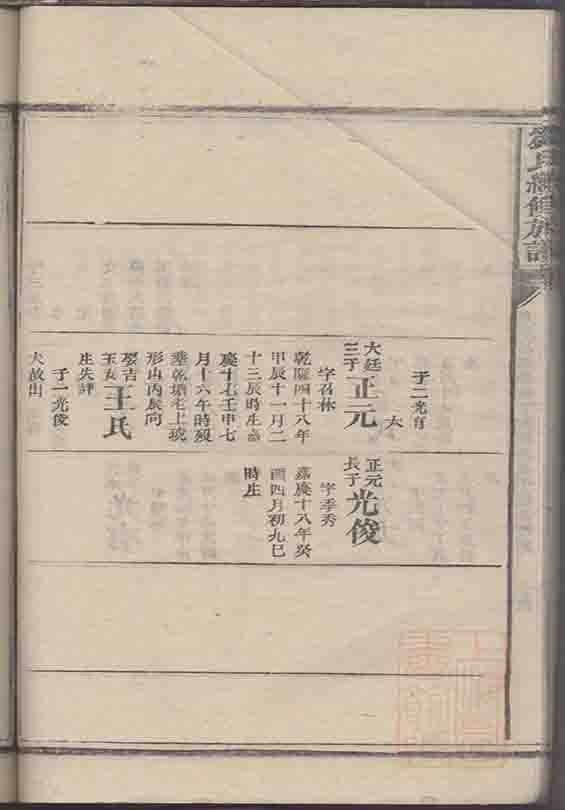 氏續修族譜
子二光育
太
大廷
三子
正元
字召林
乾隆四十八年
甲辰十一月二
十三辰時生嘉
慶十七壬申七
月十六午時歿
葬乾塘老上琥
形山丙辰向
娶吉
玉女
王氏
生失詳
子一光俊
夫故出
正元
長子
光俊
字季秀
嘉慶十八年癸
酉四月初九巳
時生